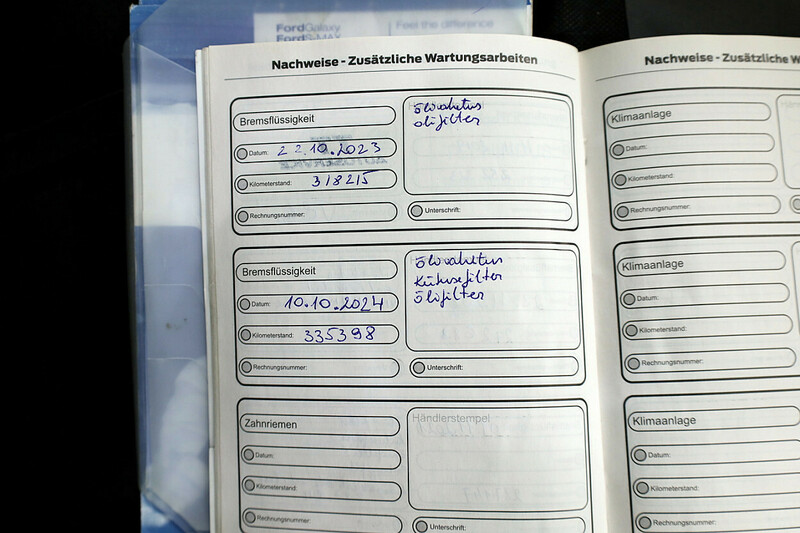 FordGalaxy
FordS-MAX
Feel the difference
Nachweise - Zusätzliche Wartungsarbeiten
Bremsflüssigkeit
Datum: 22.10.2023
Kilometerstand: 318215
Rechnungsnummer:
olifilter
Unterschrift:
Bremsflüssigkeit
Datum: 10.10.2024
Kilometerstand: 335398
Rechnungsnummer:
Ölifilter
Unterschrift:
Zahnriemen
Datum:
Kilometerstand:
Rechnungsnummer:
Händlerstempel
Unterschrift:
Nachweise - Zusätzliche
Klimaanlage
Datum:
Kilometerstand:
Rechnungsnummer:
Klimaanlage
Datum:
Kilometerstand:
Rechnungsnummer:
Klimaanlage
Datum:
Kilometerstand:
Rechnungsnummer: